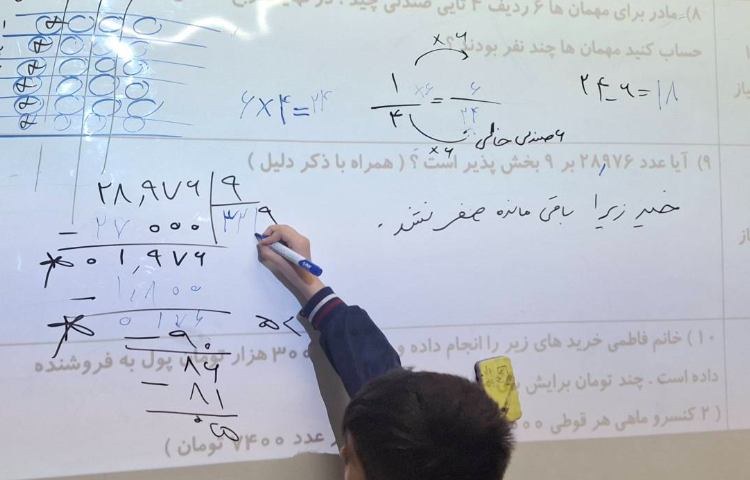 ۸) مادر برای مهمان ها ۶ ردیف ۴ تایی صندلی چید
حساب کنید مهمان ها چند نفر بودند ؟
×۶
۶×۴=۲۴
۱/۴ = ۶/۲۴
×۶
×۶
۲۴-۶=۱۸
۶ صندلی خالی
۹) آیا عدد ۲۸,۹۷۶ بر ۹ بخش پذیر است ؟ ( همراه با ذکر دلیل )
خیر زیرا باقی مانده صفر نشد .
۲۸,۹۷۶ | ۹
- ۲۷ ۰۰۰
۰۱,۹۷۶
- ۱,۸۰۰
۰۱۷۶
- ۹۰
۸۶
- ۸۱
۰۵
۵<
۱۰ ) خانم فاطمی خرید های زیر را انجام داده و ۳۰۰ هزار تومان پول به فروشنده
داده است . چند تومان برایش
( ۲ کنسرو ماهی هر قوطی
عدد ۷۴۰۰ تومان )